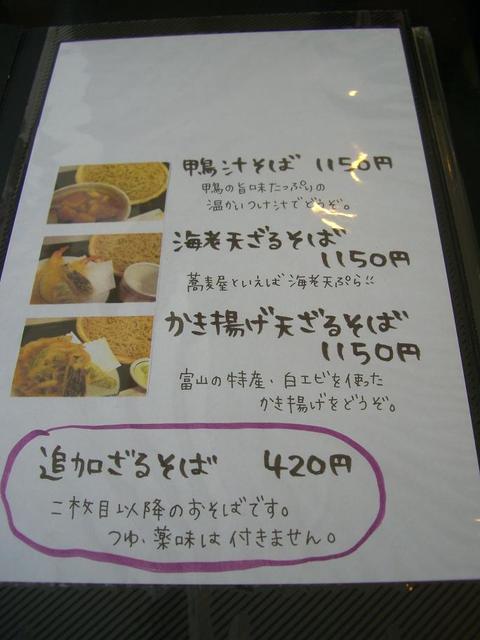 鴨汁そば 1150円
鴨の旨味たっぷりの
温かいつけ汁でどうぞ。
海老天ざるそば
1150円
蕎麦屋といえば海老天ぷら!!
かき揚げ天ざるそば
1150円
富山の特産、白エビを使った
かき揚げをどうぞ。
追加ざるそば 420円
二枚目以降のおそばです。
つゆ、薬味は付きません。